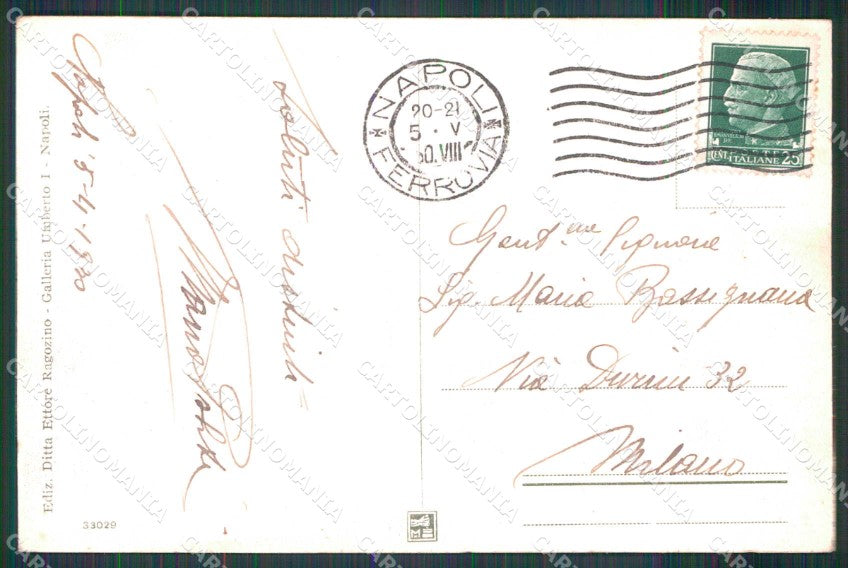 Napoli 5-4-1930
Saluti
NAPOLI
20-21
5 · V
30.VIII
FERROVIA
CENT. POSTE ITALIANE 25
Gent.me Signore
Sig. Maria Bassignana
Via Durini 32
Milano
Ediz. Ditta Ettore Ragozino - Galleria Umberto I - Napoli.
33029
CARTOLINOMANIA